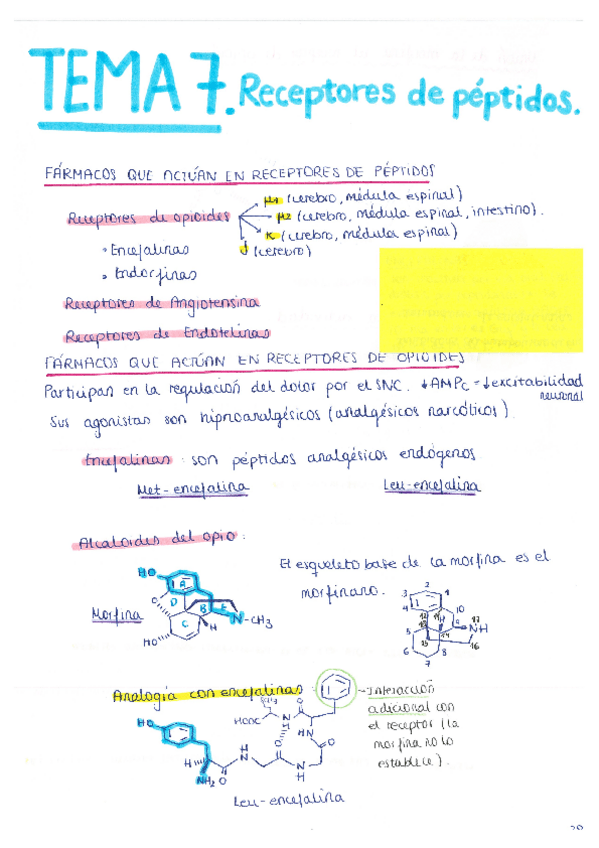 TEMA 7. Receptores de péptidos.
FÁRMACOS QUE ACTÚAN EN RECEPTORES DE PÉPTIDOS
Receptores de opioides
μ1 (cerebro, médula espinal)
μ2 (cerebro, médula espinal, intestino).
κ (cerebro, médula espinal)
δ (cerebro)
• Encefalinas
• Endorfinas
Receptores de Angiotensina
Receptores de Endotelinas
FÁRMACOS QUE ACTÚAN EN RECEPTORES DE OPIOIDES
Participan en la regulación del dolor por el SNC. ↓AMPc = ↓excitabilidad
neuronal
Sus agonistas son hipnoanalgésicos (analgésicos narcóticos).
Encefalinas: son péptidos analgésicos endógenos
Met-encefalina Leu-encefalina
Alcaloides del opio:
El esqueleto base de la morfina es el
morfinano.
Morfina
HO
A
D
O
B
E
C
N-CH3
H
HO
2
3
1
4
10
12
11
9
17
NH
13
14
16
5
15
6
8
7
Analogía con encefalinas:
Interacción
adicional con
el receptor (la
morfina no lo
establece).
HO
HOOC
N
H
O
HN
O
H
NH2
O
H
N
O
N
H
O
Leu-encefalina